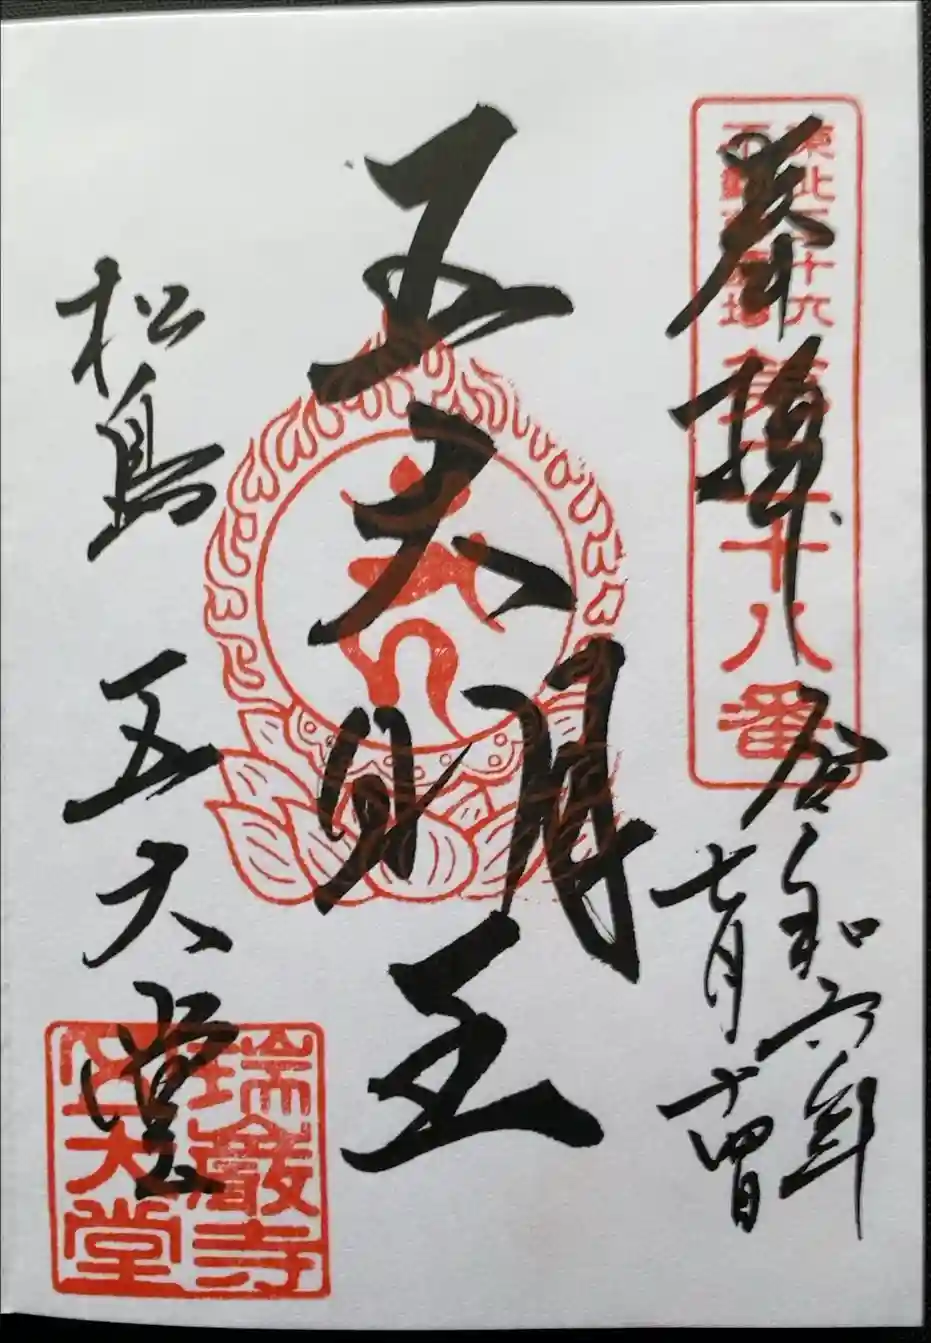 奉拝
東北三十六
不動尊霊場
第二十八番
令和六年
七月十四日
五大明王
松島 五大堂
瑞巌寺
五大堂